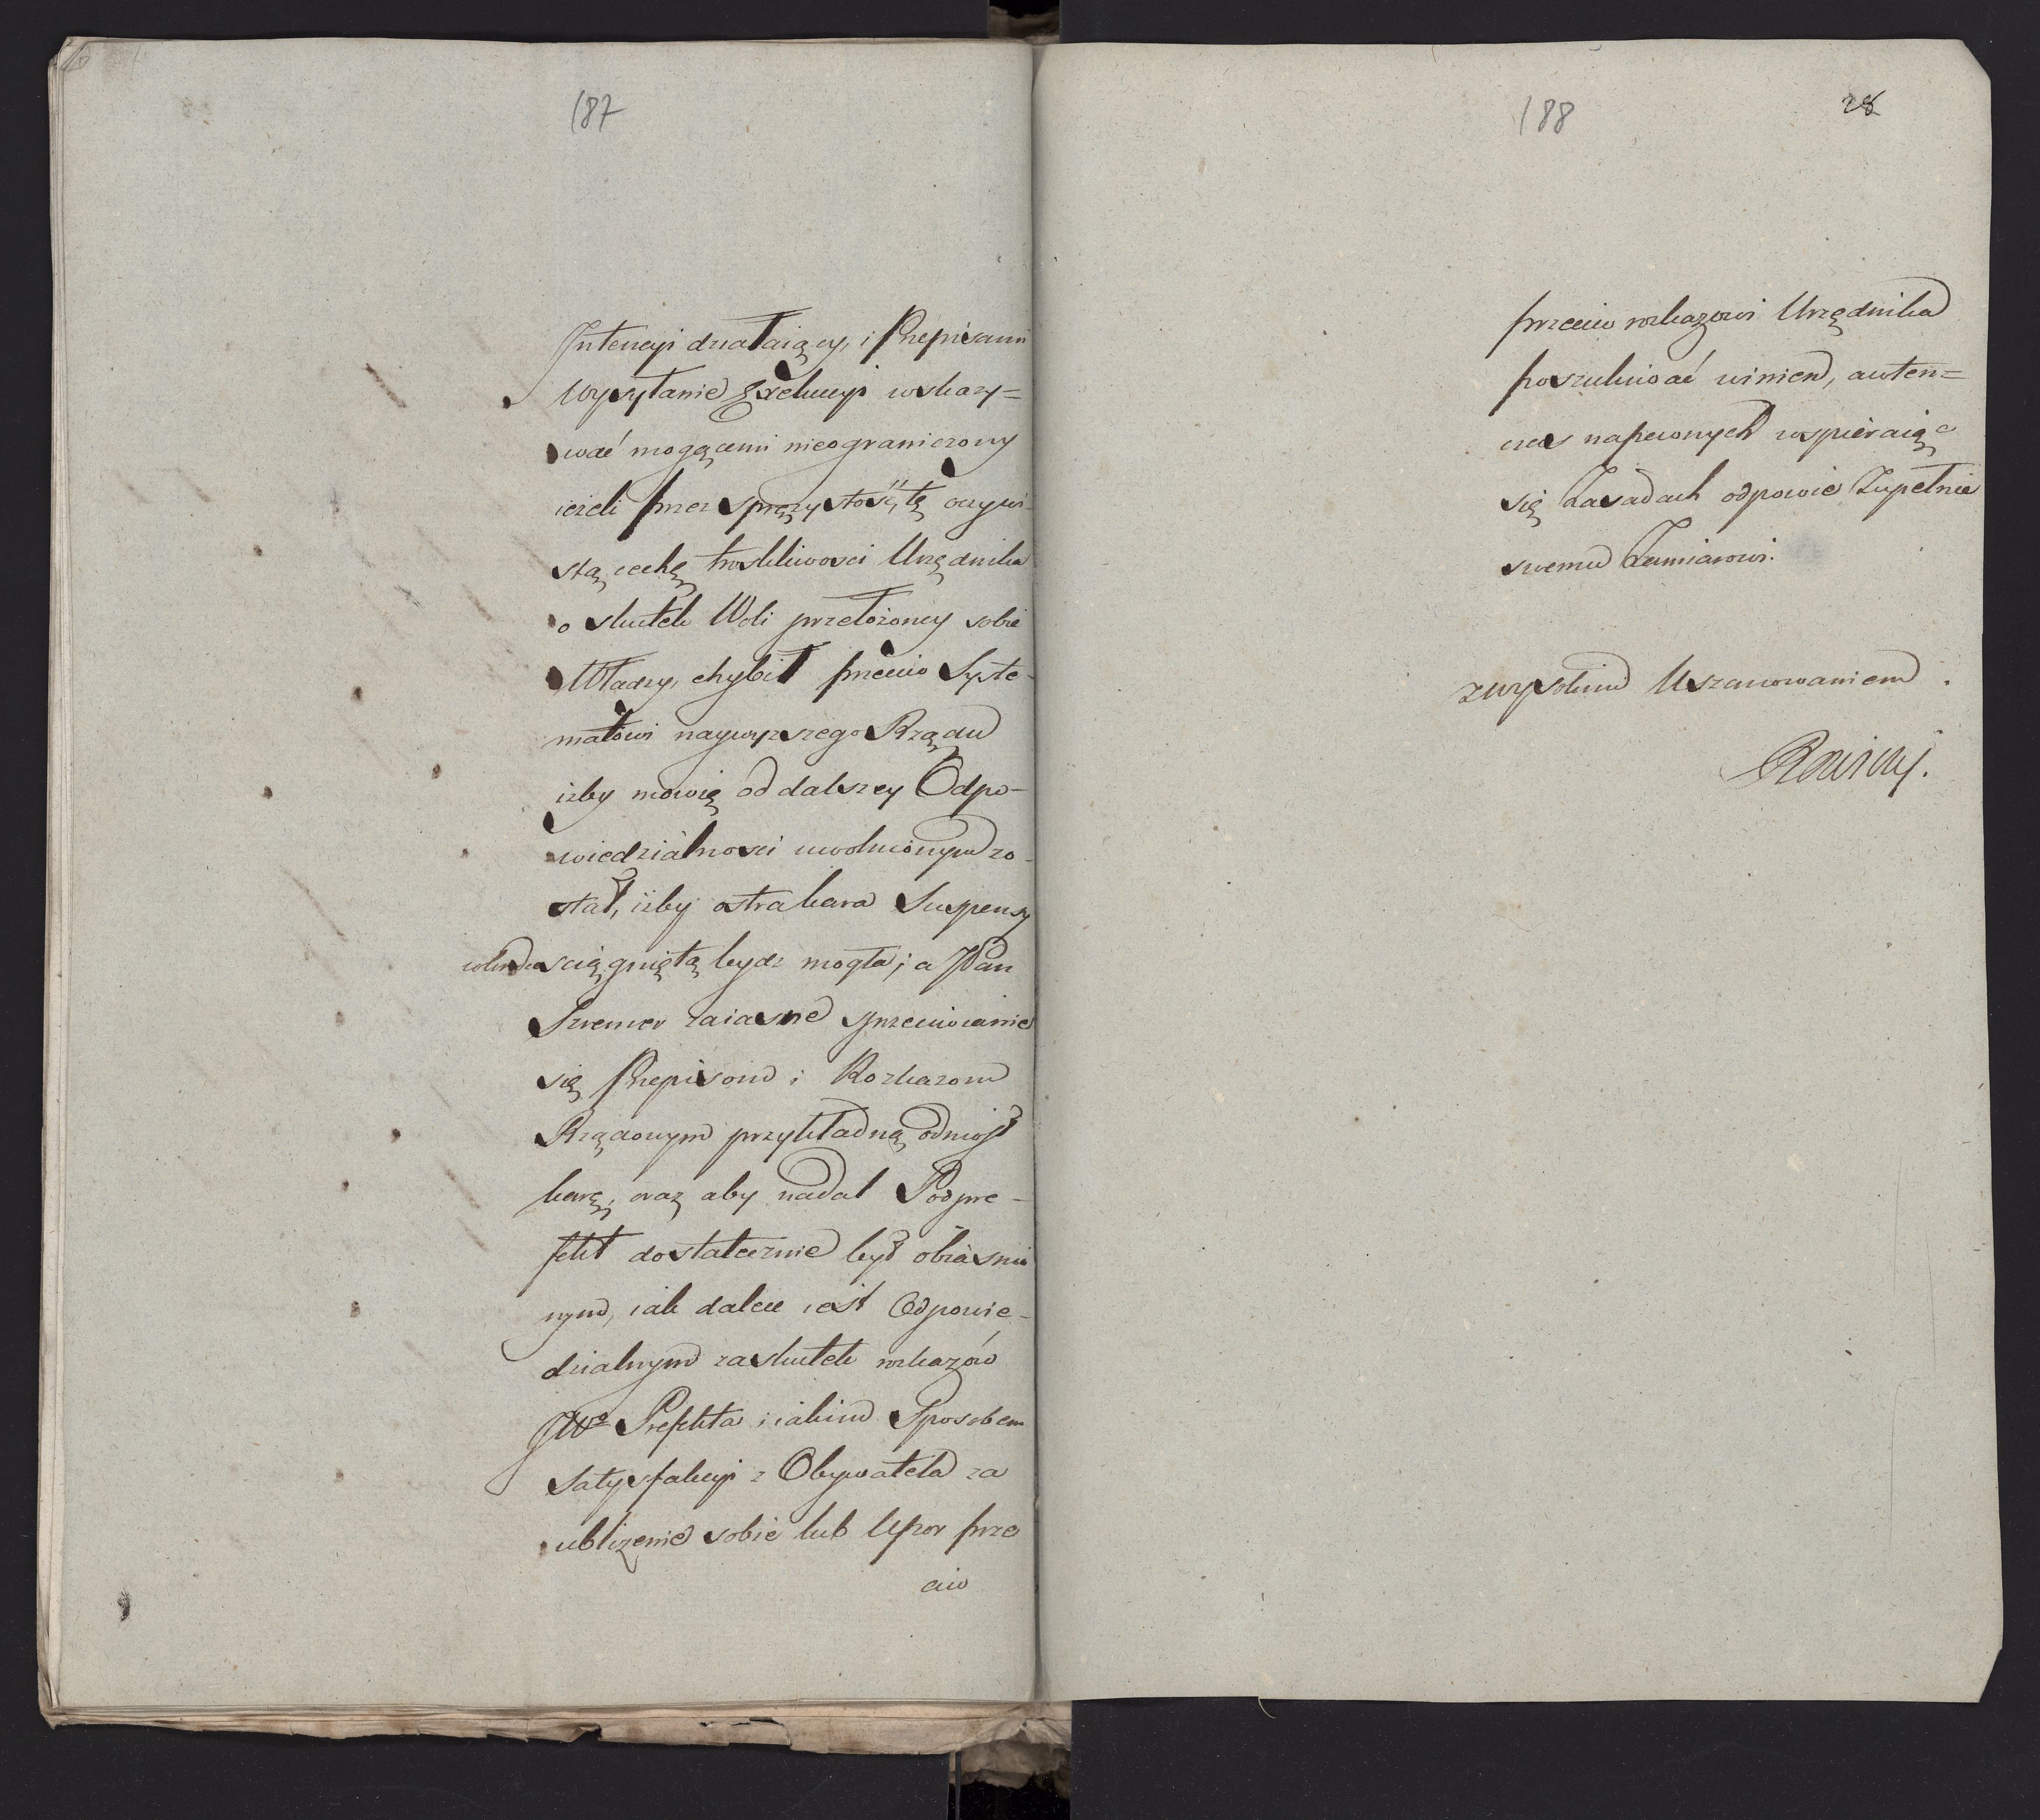 187
Intencyi działaiący, i Przepisami
wysyłanie Exekucyi wskazy=
wać mogącemi nieograniczony
ieżeli przez sprężystość, tę oczywi-
stą cechę troskliwości Urzędnika
o skutek Woli przełożoney sobie
Władzy, chybił przeciw Syste-
matowi naywyższego Rządu
iżby mowię od dalszey Odpo-
wiedzialności uwolnionym zo-
stał, iżby ostra kara Suspensy
ściągniętą bydź mogła; a JPan
Szremer zaiasne sprzeciwianie
się Przepisom i Rozkazom
Rządowym przykładną odniosł
karę, oraz aby nadal Podpre-
fekt dostatecznie był obiaśnio
nym, iak dalece iest Odpowie-
dzialnym zaskutek rozkazów
JWo Prefekta i iakim Sposobem
Satysfakcyi z Obywatela za
ubliżenie sobie lub Upor prze
ciw
188
28
przeciw rozkazowi Urzędnika
poszukiwać winien, awten=
czas napewnych wspieraiąc
się Zasadach odpowie Zupełnie
swemu Zamiarowi.
zwysokim Uszanowaniem.